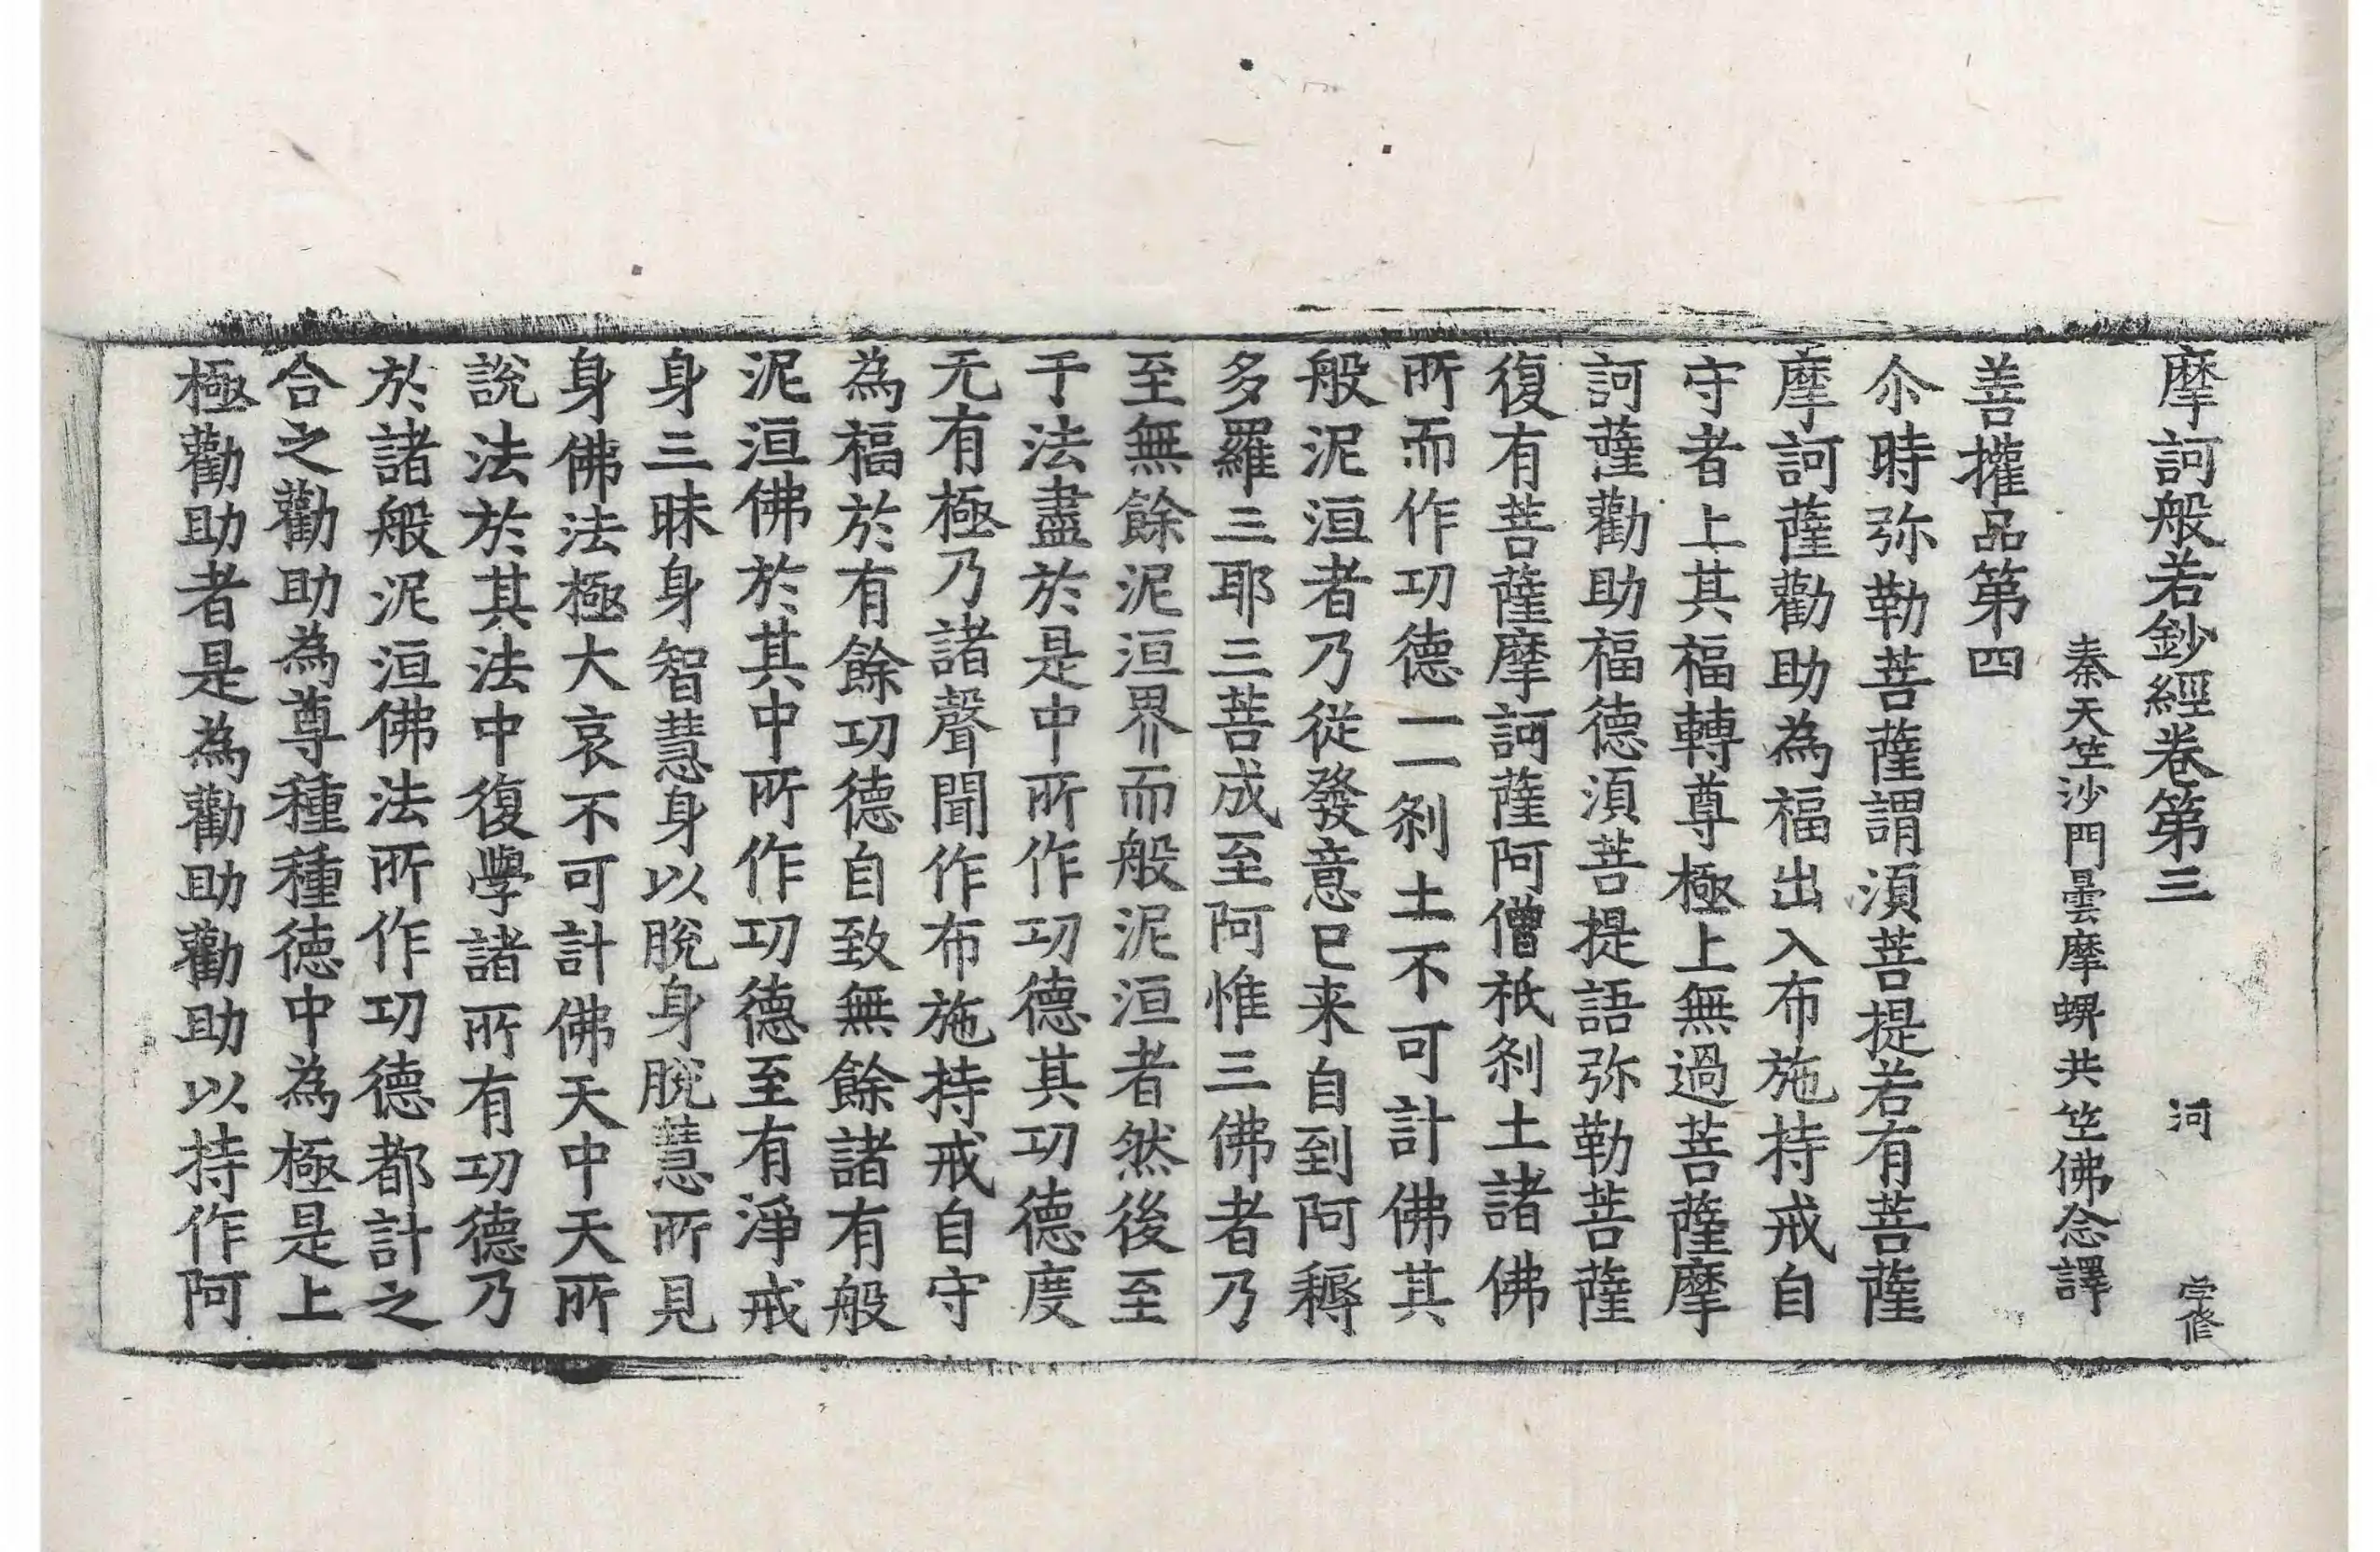 摩訶般若鈔經卷第三 河
秦天竺沙門曇摩蜱共竺佛念譯
善攉品第四
尒時弥勒菩薩謂湏菩提若有菩薩
摩訶薩勸助為福出入布施持戒自
守者上其福轉尊極上無過菩薩摩
訶薩勸助福德湏菩提語弥勒菩薩
復有菩薩摩訶薩阿僧祇剎土諸佛
所而作功德一一剎土不可計佛其
般泥洹者乃從發意已来自到阿耨
多羅三耶三菩成至阿惟三佛者乃
至無餘泥洹界而般泥洹者然後至
于法盡於是中所作功德其功德度
无有極乃諸聲聞作布施持戒自守
為福於有餘功德自致無餘諸有般
泥洹佛於其中所作功德至有淨戒
身三昧身智慧身以脫身脫慧所見
身佛法極大哀不可計佛天中天所
說法於其法中復學諸所有功德乃
於諸般泥洹佛法所作功德都計之
合之勸助為尊種種德中為極是上
極勸助者是為勸助勸助以持作阿